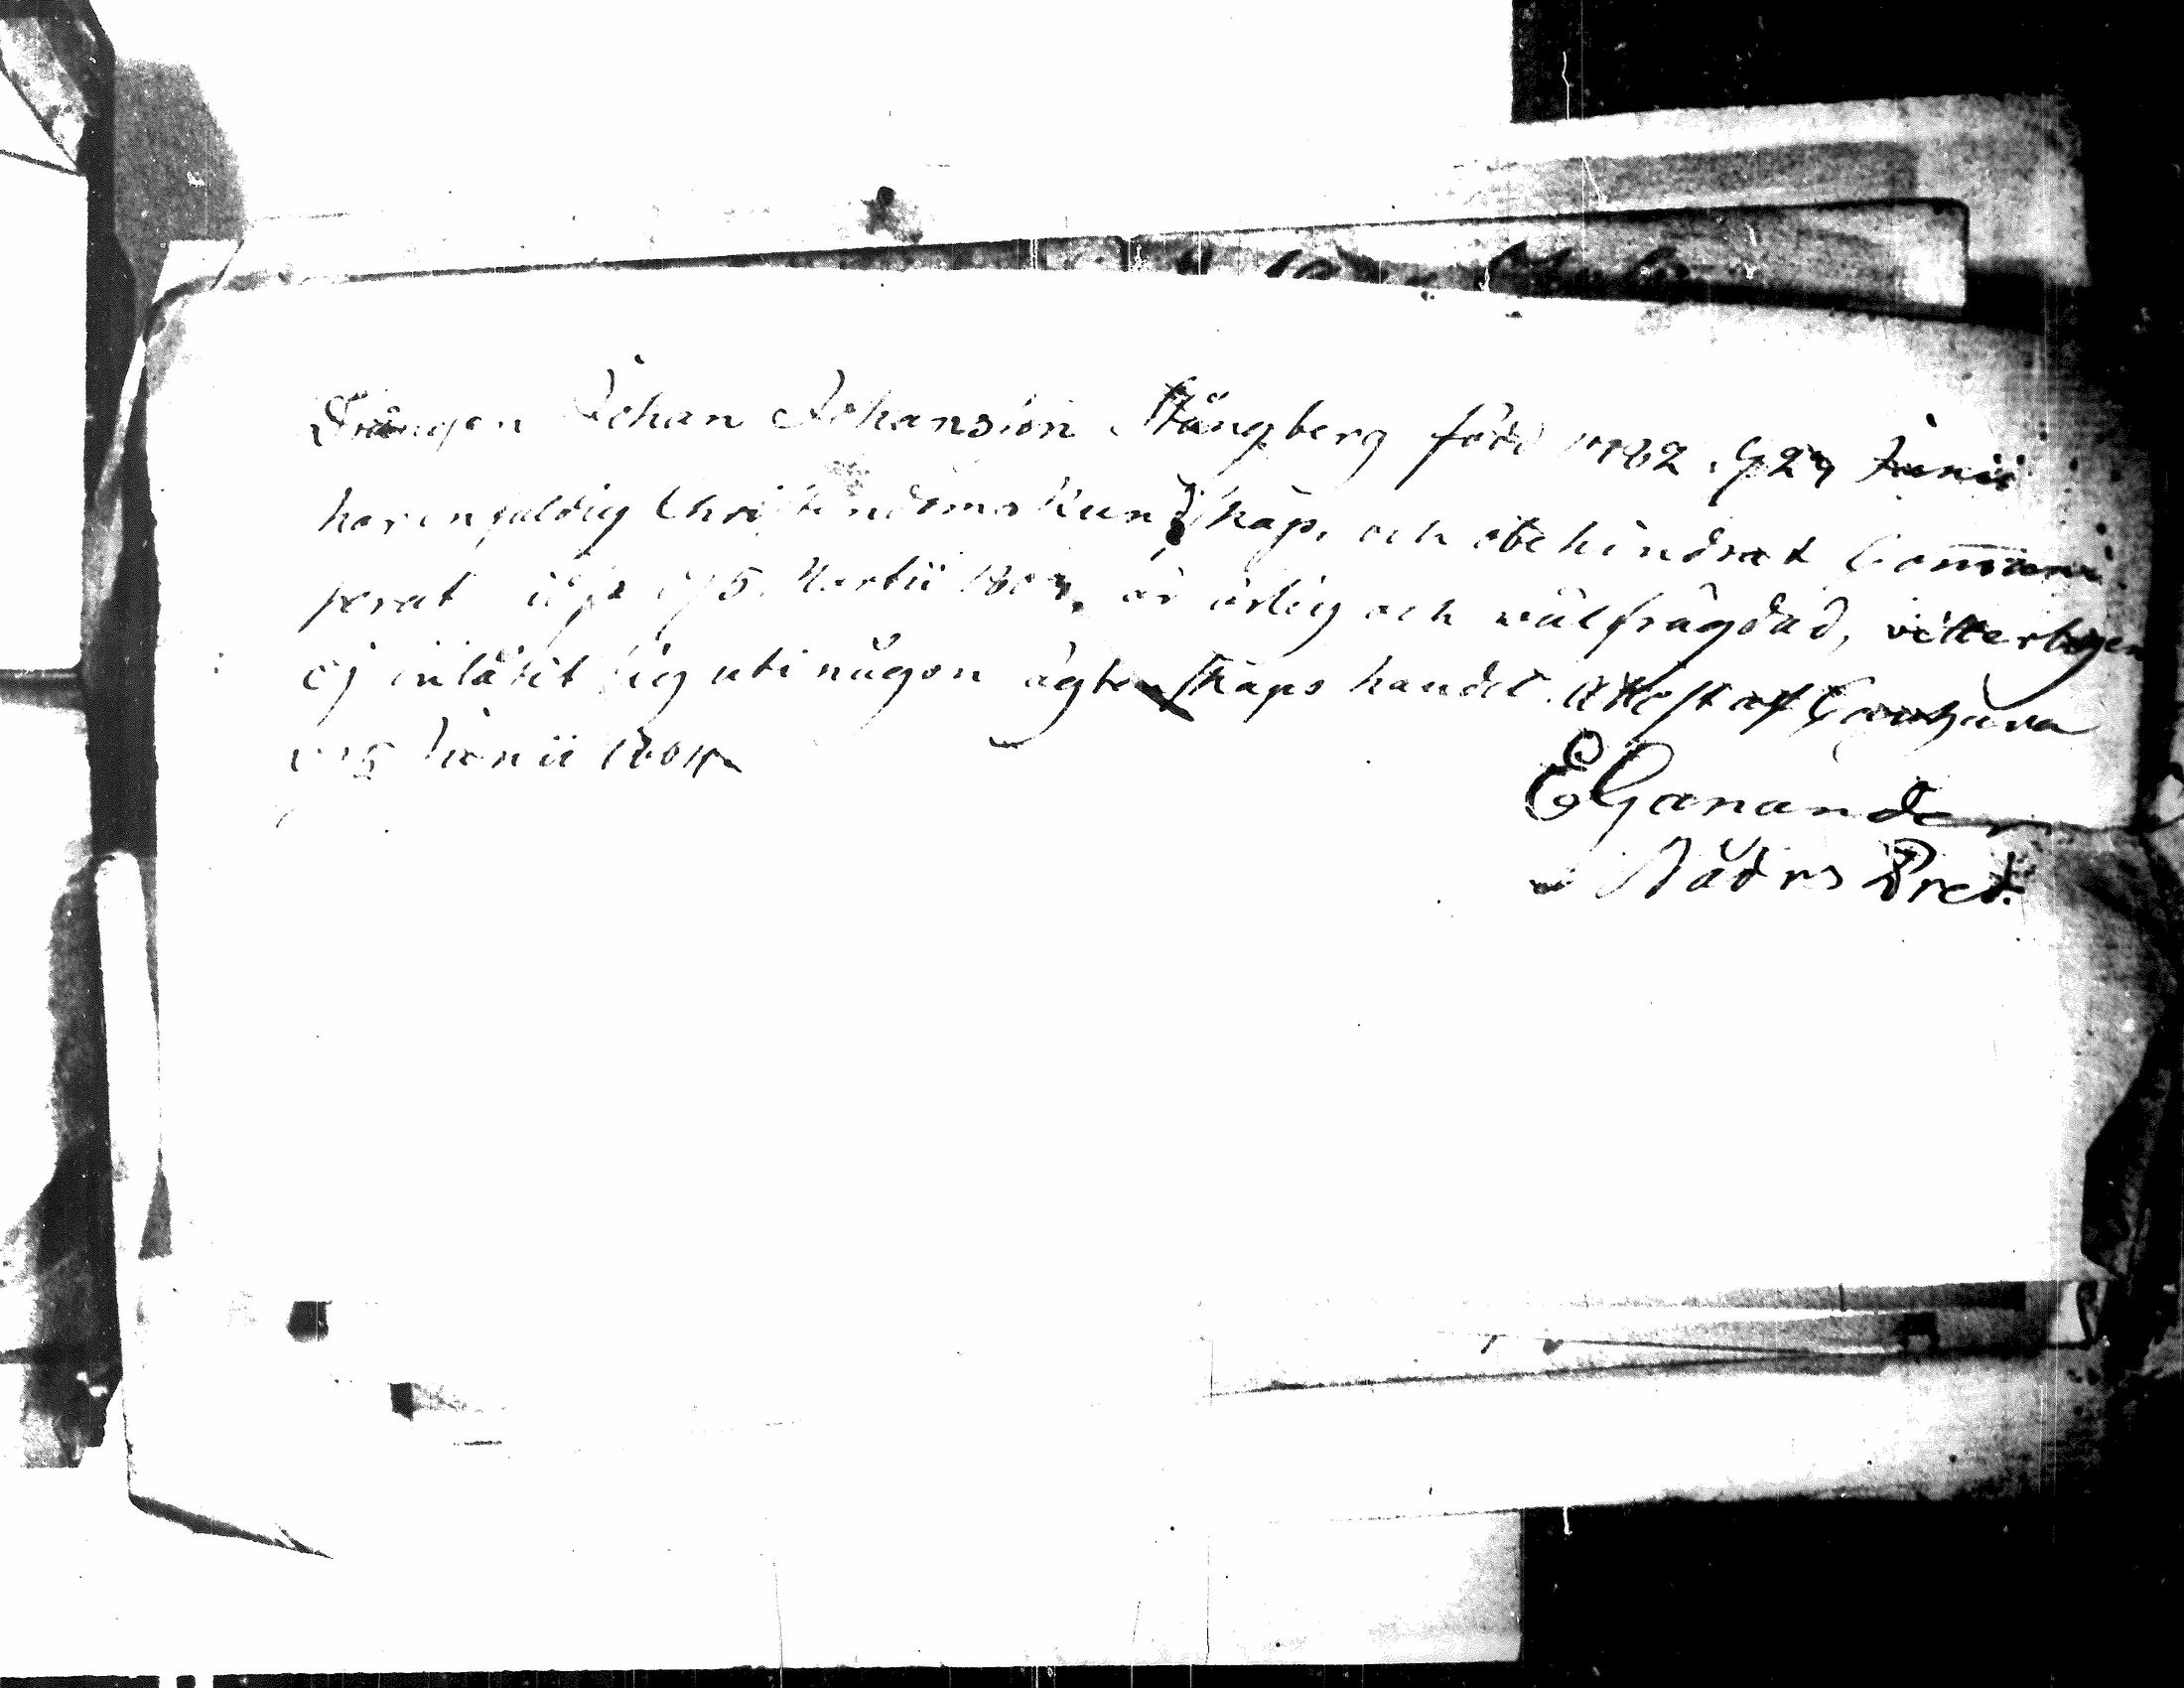 Drängen Johan Johansson Stångberg född 1782. d 29 Junii
har enfaldig Christendoms Kundskap, och obehindrat Communi
perat sidst d 5. Martii 1804, är ärlig och wälfrägdad, vitterligen
ej inlåtit sig uti någon ägtenskaps handel. Attest af
d 15 Junii 1804
E Ganander
Nåd rs Pred.